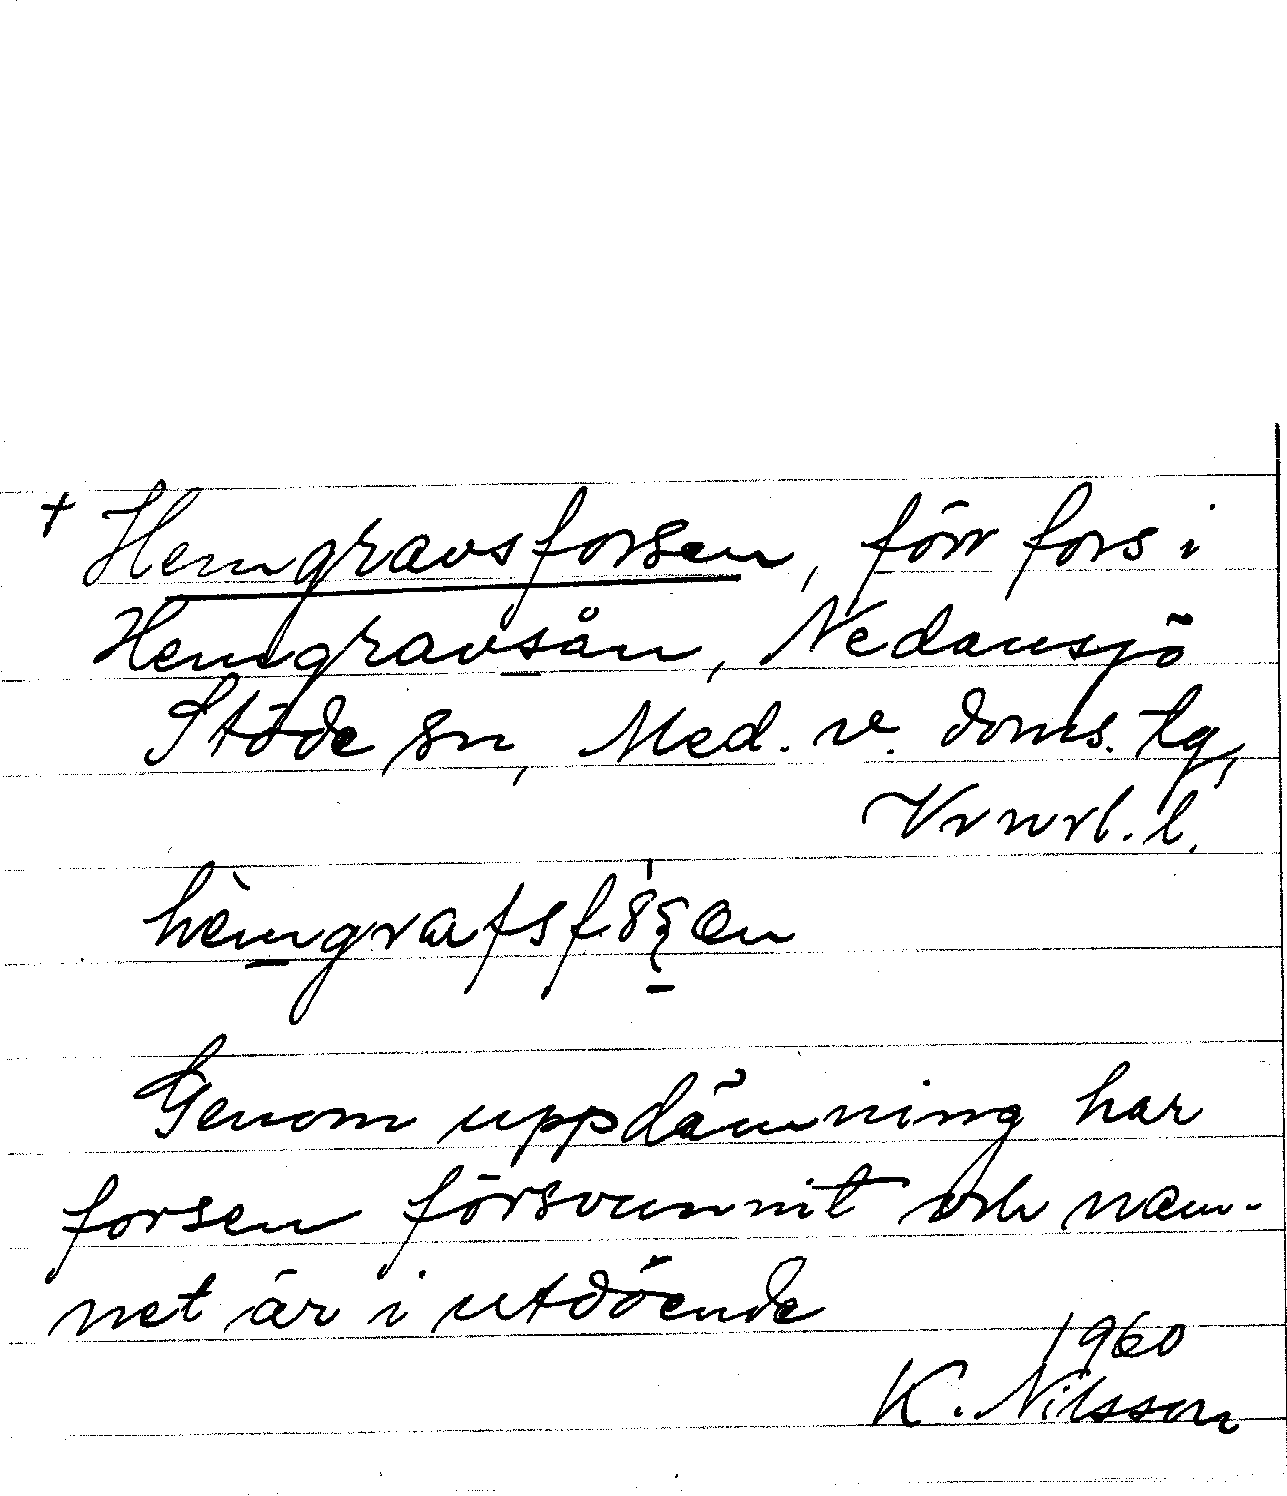 † Hemgravsforsen, förr fors i
Hemgravsån, Nedansjö
Stöde sn, Med. v. doms. tg,
Vrnrl. l.
hèmgrafsf
Genom uppdämning har
forsen försvunnit och nam-
net är i utdöende
1960
K. Nilsson